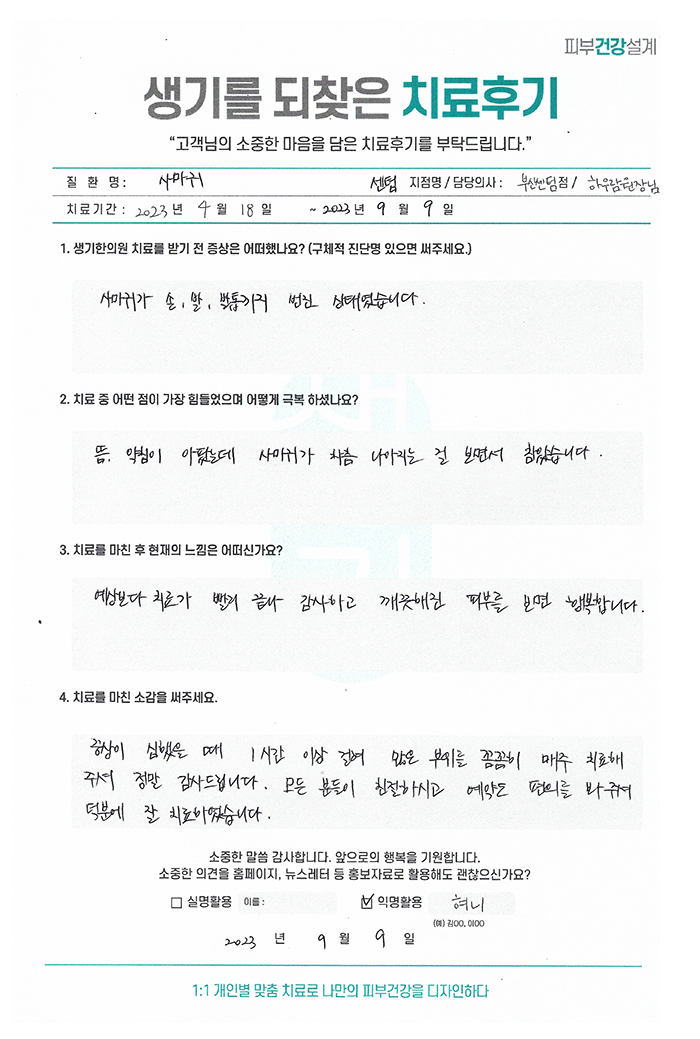 피부건강설계
생기를 되찾은 치료후기
“고객님의 소중한 마음을 담은 치료후기를 부탁드립니다.”
질 환 명 : 사마귀 센텀 지점명 / 담당의사 : 부산센텀점 / 하우람원장님
치료기간 : 2023 년 4 월 18 일 ~ 2023 년 9 월 9 일
1. 생기한의원 치료를 받기 전 증상은 어떠했나요? (구체적 진단명 있으면 써주세요.)
사마귀가 손, 발, 발톱까지 번진 상태였습니다.
2. 치료 중 어떤 점이 가장 힘들었으며 어떻게 극복 하셨나요?
뜸, 약침이 아팠는데 사마귀가 차츰 나아지는 걸 보면서 참았습니다.
3. 치료를 마친 후 현재의 느낌은 어떠신가요?
예상보다 치료가 빨리 끝나 감사하고 깨끗해진 피부를 보면 행복합니다.
4. 치료를 마친 소감을 써주세요.
증상이 심했을 때 1시간 이상 걸려 많은 부위를 꼼꼼히 매주 치료해
주셔 정말 감사드립니다. 모든 분들이 친절하시고 예약도 편의를 봐주셔
덕분에 잘 치료하였습니다.
소중한 말씀 감사합니다. 앞으로의 행복을 기원합니다.
소중한 의견을 홈페이지, 뉴스레터 등 홍보자료로 활용해도 괜찮으신가요?
실명활용 이름 : 익명활용 혀니
(예) 김OO, 이OO
2023 년 9 월 9 일
1:1 개인별 맞춤 치료로 나만의 피부건강을 디자인하다